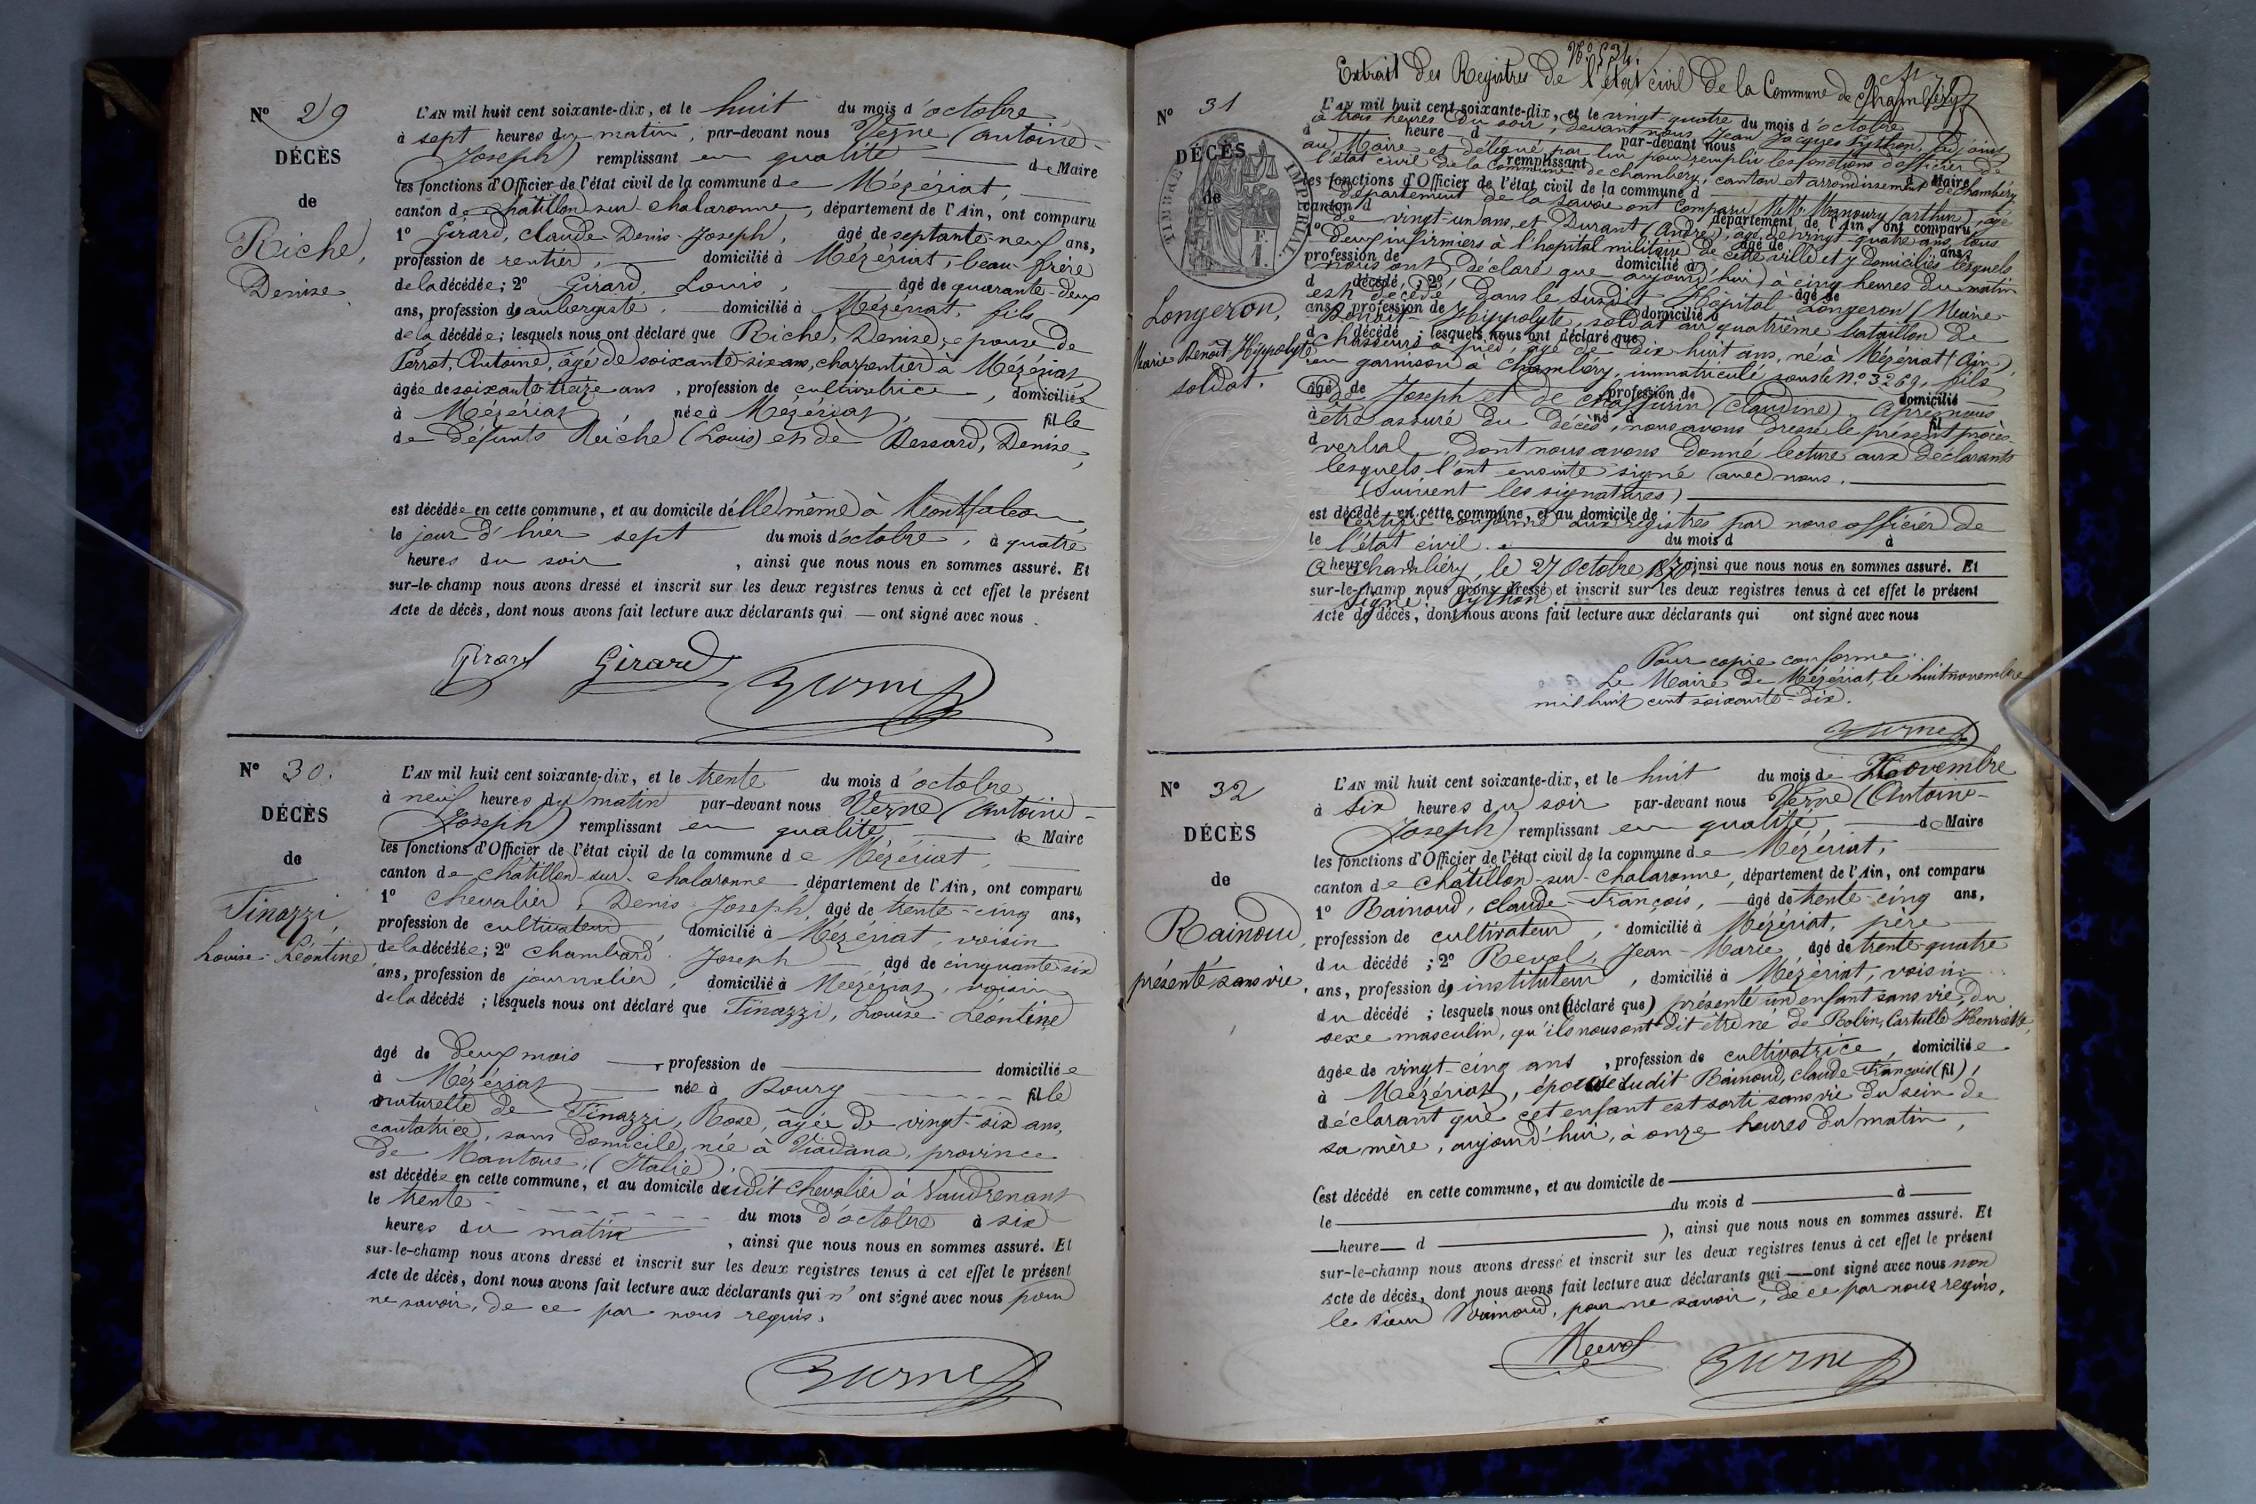 N° 29
DÉCÈS
de
Riche,
Denise
L'AN mil huit cent soixante-dix, et le huit du mois d'octobre
à sept heures du matin, par-devant nous Verne (Antoine-
Joseph) remplissant en qualité de Maire
les fonctions d'Officier de l'état civil de la commune de Mézériat,
canton de Chatillon-sur-Chalaronne, département de l'Ain, ont comparu
1° Girard, Claude-Denis-Joseph, âgé de septante-neuf ans,
profession de rentier, domicilié à Mézériat, beau-frère
de la décédée; 2° Girard, Louis, âgé de quarante-deux
ans, profession d'aubergiste, domicilié à Mézériat, fils
de la décédée; lesquels nous ont déclaré que Riche, Denise, épouse de
Perrot, Antoine, âgé de soixante-six ans, charpentier à Mézériat
âgée de soixante-treize ans, profession de cultivatrice, domiciliée
à Mézériat, née à Mézériat, fille
de défunts Riche (Louis) et de Bessard, Denise,
est décédée en cette commune, et au domicile d'elle même à Montfalcon
le jour d'hier sept du mois d'octobre, à quatre
heures du soir, ainsi que nous nous en sommes assuré. Et
sur-le-champ nous avons dressé et inscrit sur les deux registres tenus à cet effet le présent
Acte de décès, dont nous avons fait lecture aux déclarants qui — ont signé avec nous.
Girard Girard Verne
N° 30.
DÉCÈS
de
Tinazzi,
Louise-Léontine
L'AN mil huit cent soixante-dix, et le trente du mois d'octobre
à neuf heures du matin par-devant nous Verne (Antoine-
Joseph) remplissant en qualité de Maire
les fonctions d'Officier de l'état civil de la commune de Mézériat,
canton de Châtillon-sur-Chalaronne département de l'Ain, ont comparu
1° Chevalier, Denis-Joseph, âgé de trente-cinq ans,
profession de cultivateur, domicilié à Mézériat, voisin
de la décédée; 2° Chambard, Joseph âgé de cinquante-six
ans, profession de journalier, domicilié à Mézériat, voisin
de la décédé; lesquels nous ont déclaré que Tinazzi, Louise-Léontine
âgé de deux mois profession de domiciliée
à Mézériat née à Bourg fille
naturelle de Tinazzi, Rose, âgée de vingt-six ans,
cantatrice, sans domicile, née à Viadana, province
de Mantoue, (Italie),
est décédée en cette commune, et au domicile dudit Chevalier à Vaudrenant
le trente du mois d'octobre à six
heures du matin, ainsi que nous nous en sommes assuré. Et
sur-le-champ nous avons dressé et inscrit sur les deux registres tenus à cet effet le présent
Acte de décès, dont nous avons fait lecture aux déclarants qui n'ont signé avec nous pour
ne savoir, de ce par nous requis.
Verne
N° 534.
Extrait des Registres de l'état civil de la Commune de Chambéry
N° 31
DÉCÈS
de
TIMBRE IMPÉRIAL
Longeron,
Marie Benoît Hippolyte
soldat.
L'AN mil huit cent soixante-dix, et le vingt-quatre du mois d'octobre
à trois heures du soir, devant nous Jean Jacques Python, adjoint
à heure d par-devant nous
au Maire et délégué par lui pour remplir les fonctions d'officier de
remplissant d Maire
l'état civil de la commune de Chambéry, canton et arrondissement de Chambéry
les fonctions d'Officier de l'état civil de la commune d
département de la Savoie ont comparu MM. Manoury (Arthur), âgé
canton d département de l'Ain, ont comparu
de vingt-un ans, et Durant (André), âgé de vingt-quatre ans, tous
1° âgé de ans,
deux infirmiers à l'hôpital militaire de cette ville et y domiciliés lesquels
profession de domicilié à
nous ont déclaré que aujourd'hui à cinq heures du matin
d décédé; 2° âgé de
est décédé dans le susdit Hôpital Longeron (Marie-
ans, profession de domicilié à
Benoît-Hippolyte, soldat au quatrième bataillon de
d décédé; lesquels nous ont déclaré que
Chasseurs à pied, âgé de dix-huit ans, né à Mézériat (Ain),
en garnison à Chambéry, immatriculé sous le N° 3269, fils
âgé de profession de domicilié
de Joseph et de (Claudine). Après nous
à né à fil
être assuré du décès, nous avons dressé le présent procès-
d
verbal, dont nous avons donné lecture aux déclarants
lesquels l'ont ensuite signé avec nous.
(Suivent les signatures)
est décédé en cette commune, et au domicile de
Certifié conforme aux registres par nous officier de
le du mois d à
l'état civil.
heure d ainsi que nous nous en sommes assuré. Et
A Chambéry, le 27 Octobre 1870.
sur-le-champ nous avons dressé et inscrit sur les deux registres tenus à cet effet le présent
Signé: Python
Acte de décès, dont nous avons fait lecture aux déclarants qui ont signé avec nous
Pour copie conforme:
Le Maire de Mézériat, le huit novembre
mil huit cent soixante-dix.
Verne
N° 32
DÉCÈS
de
Rainoud,
présenté sans vie,
L'AN mil huit cent soixante-dix, et le huit du mois de Novembre
à six heures du soir par-devant nous Verne (Antoine-
Joseph) remplissant en qualité de Maire
les fonctions d'Officier de l'état civil de la commune de Mézériat,
canton de Châtillon-sur-Chalaronne, département de l'Ain, ont comparu
1° Rainoud, Claude-François, âgé de trente-cinq ans,
profession de cultivateur, domicilié à Mézériat, père
du décédé; 2° Revol, Jean-Marie âgé de trente-quatre
ans, profession d'instituteur, domicilié à Mézériat, voisin
du décédé; lesquels nous ont (déclaré que) présenté un enfant sans vie, du
sexe masculin, qu'ils nous ont dit être né de Robin, Henriette
âgée de vingt-cinq ans, profession de cultivatrice, domiciliée
à Mézériat, épouse dudit Rainoud, Claude-François (fil),
déclarant que cet enfant est sorti sans vie du sein de
sa mère, aujourd'hui, à onze heures du matin,
(est décédé en cette commune, et au domicile de
le du mois d à
heure d ), ainsi que nous nous en sommes assuré. Et
sur-le-champ nous avons dressé et inscrit sur les deux registres tenus à cet effet le présent
Acte de décès, dont nous avons fait lecture aux déclarants qui — ont signé avec nous non
le sieur Rainoud, pour ne savoir, de ce par nous requis.
Revol Verne